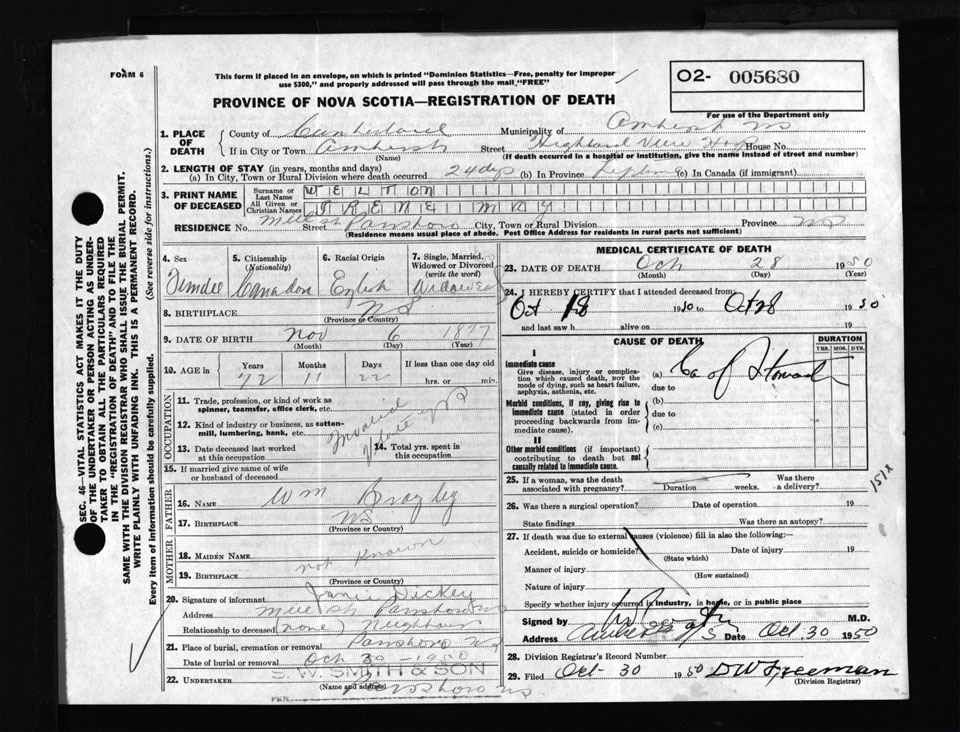 FORM 6
This form if placed in an envelope, on which is printed "Dominion Statistics—Free, penalty for improper
use $300," and properly addressed will pass through the mail "FREE"
O2- 005680
For use of the Department only
PROVINCE OF NOVA SCOTIA—REGISTRATION OF DEATH
1. PLACE OF DEATH
County of Cumberland Municipality of Amherst NS
If in City or Town Amherst Street Highland View Hosp House No.
(Name) (If death occurred in a hospital or institution, give the name instead of street and number)
2. LENGTH OF STAY (in years, months and days)
(a) In City, Town or Rural Division where death occurred 24 dys (b) In Province Lifetime (c) In Canada (if immigrant)
3. PRINT NAME OF DECEASED
Surname or Last Name WELTON
All Given or Christian Names IRENE MAY
RESIDENCE No. Mill St Street Parrsboro City, Town or Rural Division Province NS
(Residence means usual place of abode. Post Office Address for residents in rural parts not sufficient)
4. Sex Female
5. Citizenship (Nationality) Canadian
6. Racial Origin English
7. Single, Married, Widowed or Divorced (write the word) Widowed
8. BIRTHPLACE NS
(Province or Country)
9. DATE OF BIRTH Nov 6 1877
(Month) (Day) (Year)
10. AGE in Years Months Days If less than one day old
72 11 22 hrs. or min.
OCCUPATION
11. Trade, profession, or kind of work as spinner, teamster, office clerk, etc.
12. Kind of industry or business, as cotton-mill, lumbering, bank, etc.
Invalid
13. Date deceased last worked at this occupation
14. Total yrs. spent in this occupation
15. If married give name of wife or husband of deceased
FATHER
16. NAME Wm
17. BIRTHPLACE NS
(Province or Country)
MOTHER
18. MAIDEN NAME not known
19. BIRTHPLACE
(Province or Country)
20. Signature of informant Dickey
Address Mill St Parrsboro NS
Relationship to deceased (none) Neighbour
21. Place of burial, cremation or removal Parrsboro NS
Date of burial or removal Oct 30 1950
S. W. SMITH & SON
22. UNDERTAKER Parrsboro NS
(Name and address)
PER
MEDICAL CERTIFICATE OF DEATH
23. DATE OF DEATH Oct 28 1950
(Month) (Day) (Year)
24. I HEREBY CERTIFY that I attended deceased from:
Oct 18 1950 to Oct 28 1950
and last saw h alive on 19
CAUSE OF DEATH
DURATION
YRS. MOS. DYS.
I
Immediate cause
Give disease, injury or complication which caused death, NOT the mode of dying, such as heart failure, asphyxia, asthenia, etc.
(a) Ca of Stomach
due to
Morbid conditions, if any, giving rise to immediate cause (stated in order proceeding backwards from immediate cause).
(b)
due to
(c)
II
Other morbid conditions (if important) contributing to death but not causally related to immediate cause.
151X
25. If a woman, was the death associated with pregnancy? Duration weeks. Was there a delivery?
26. Was there a surgical operation? Date of operation 19
State findings Was there an autopsy?
27. If death was due to external causes (violence) fill in also the following:—
Accident, suicide or homicide? Date of injury 19
(State which)
Manner of injury
(How sustained)
Nature of injury
Specify whether injury occurred in industry, in home, or in public place
Signed by M.D.
Address Amherst NS Date Oct 30 1950
28. Division Registrar's Record Number
29. Filed Oct 30 1950 DW Freeman
(Division Registrar)
SEC. 46—VITAL STATISTICS ACT MAKES IT THE DUTY
OF THE UNDERTAKER OR PERSON ACTING AS UNDERTAKER
TO OBTAIN ALL THE PARTICULARS REQUIRED
IN THE "REGISTRATION OF DEATH" AND TO FILE THE
SAME WITH THE DIVISION REGISTRAR WHO SHALL ISSUE THE BURIAL PERMIT.
WRITE PLAINLY WITH UNFADING INK. THIS IS A PERMANENT RECORD.
Every item of information should be carefully supplied. (See reverse side for instructions.)